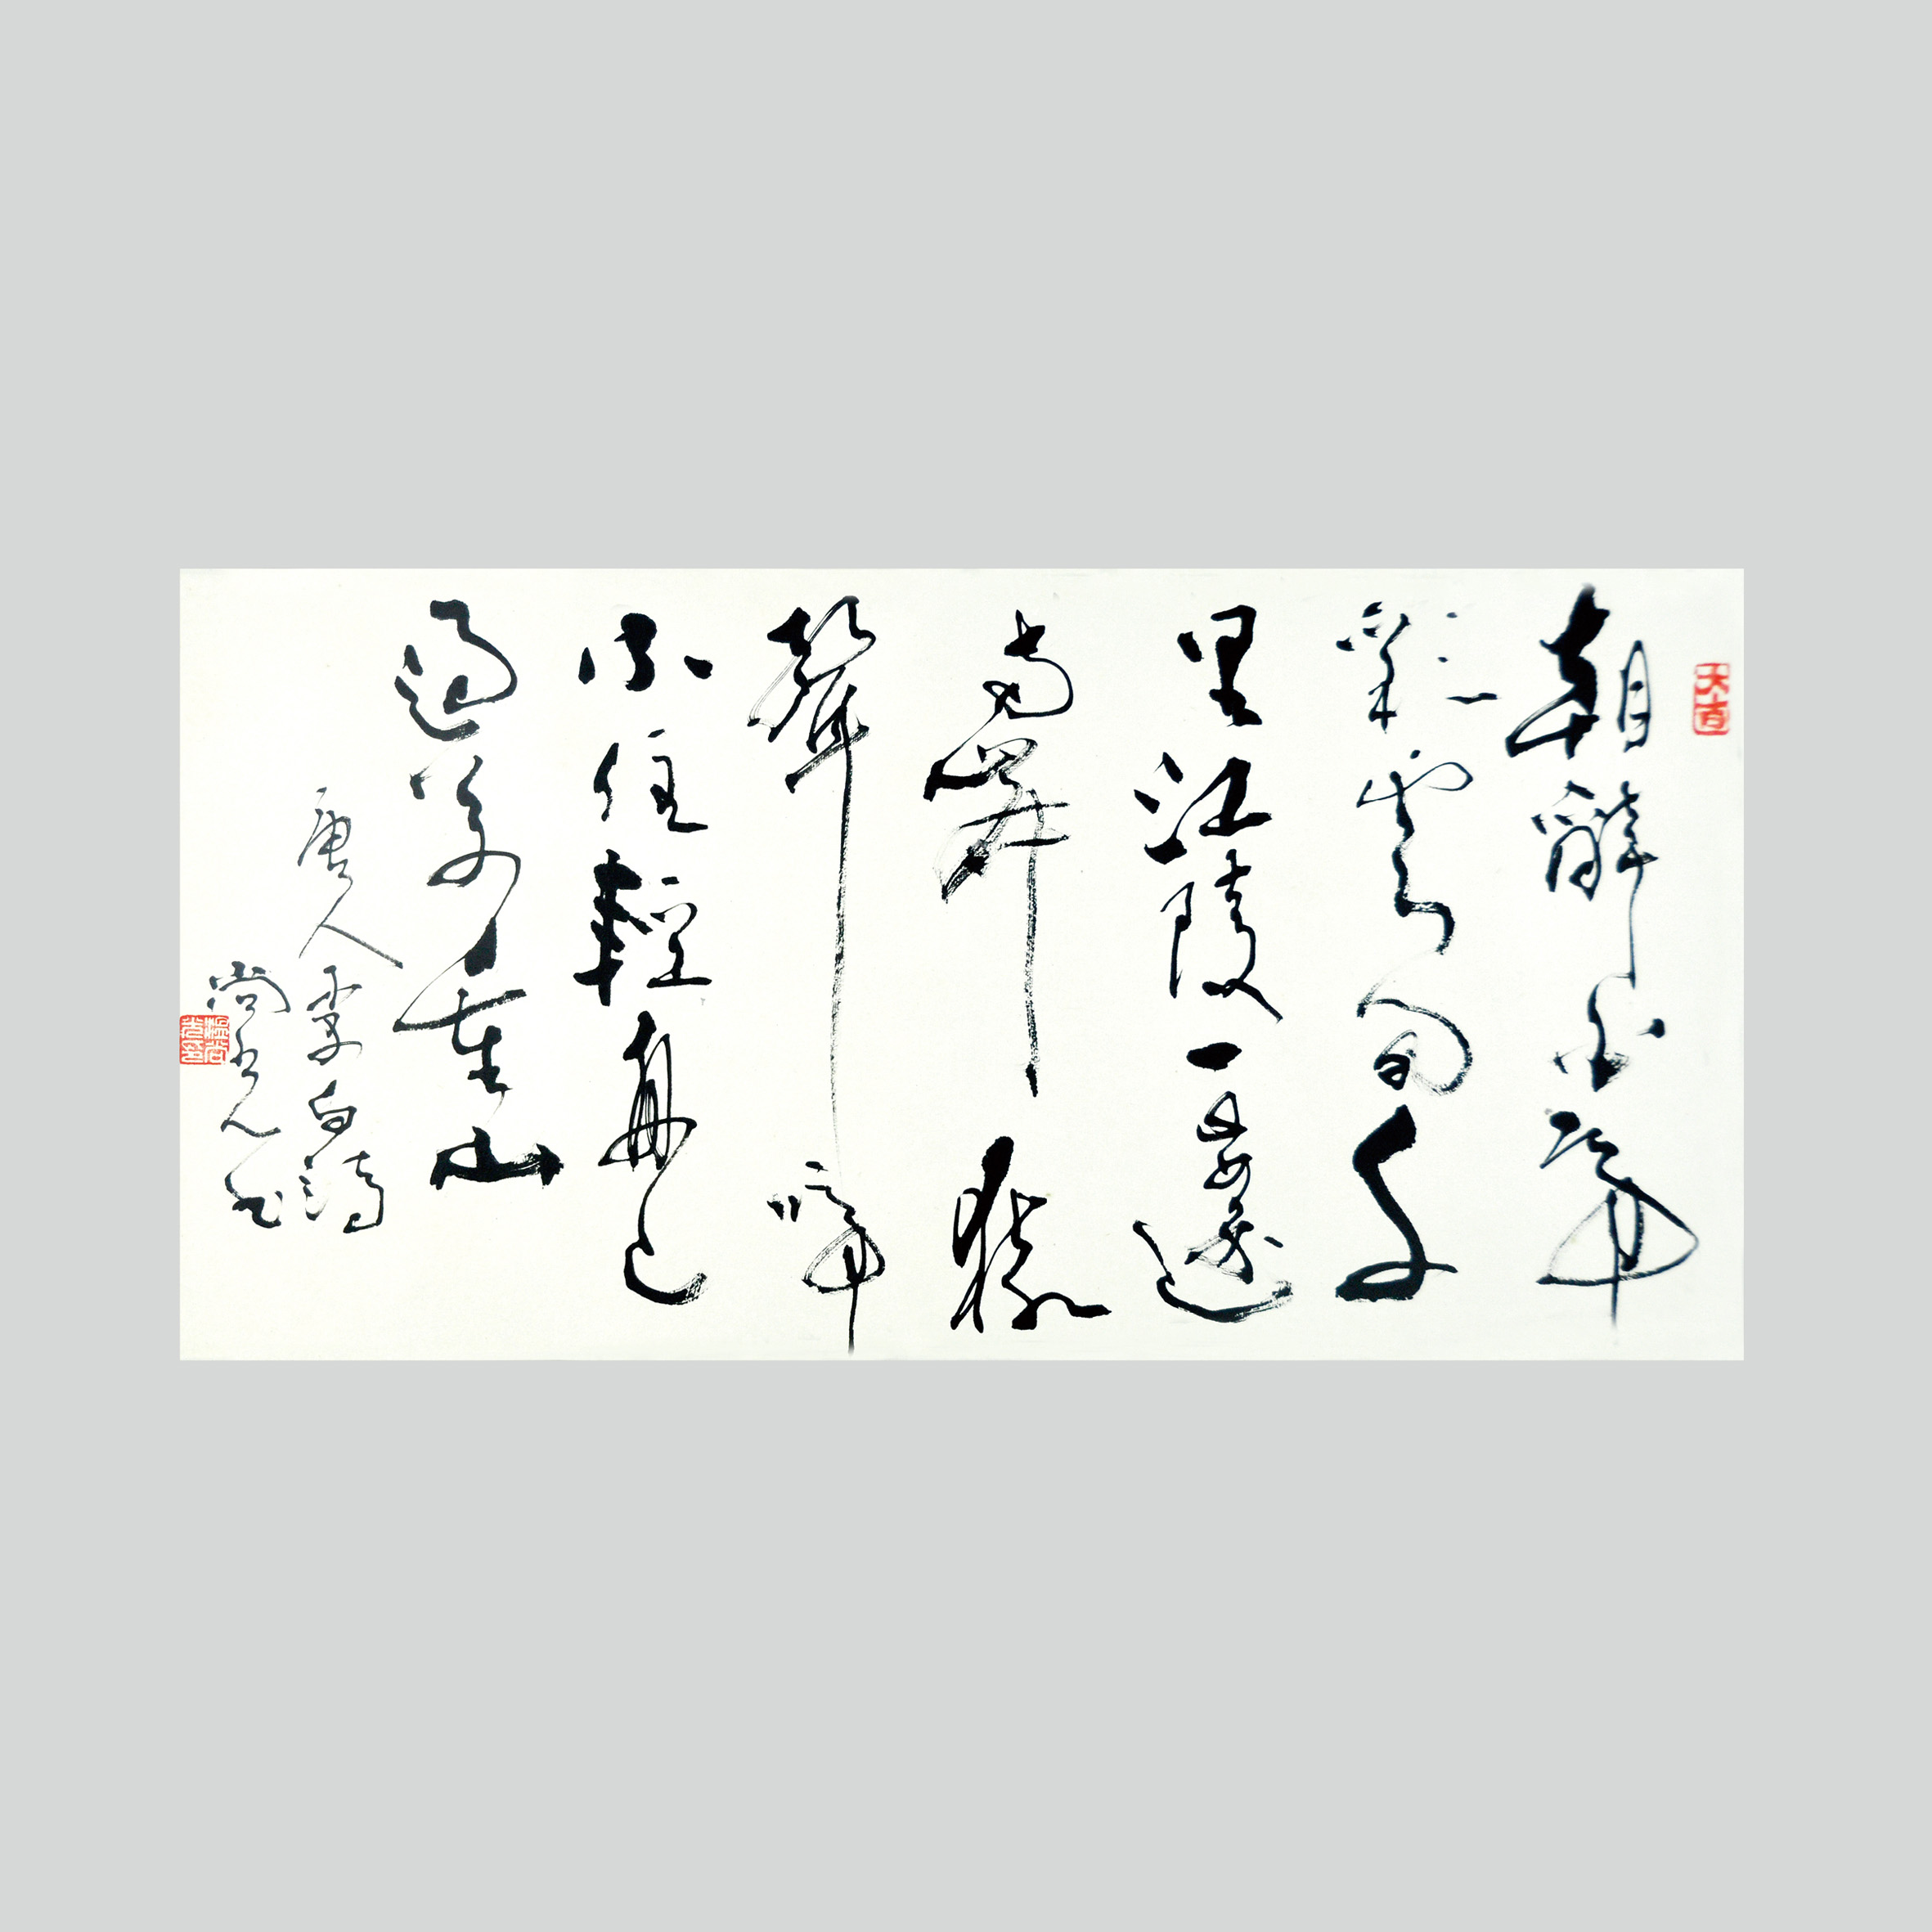 朝辭白帝
彩雲間千
里江陵一日還
兩岸猿
聲啼
不住輕舟已
過萬重山
唐人李白詩
尚